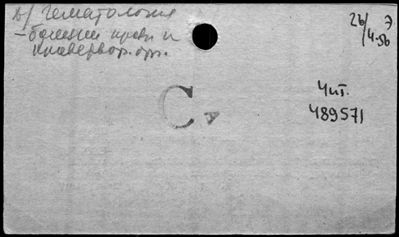 в/ гематология
- болезни кров. и
кроветвор. орг.
26/4-56
Э
Чит.
489571
С
А